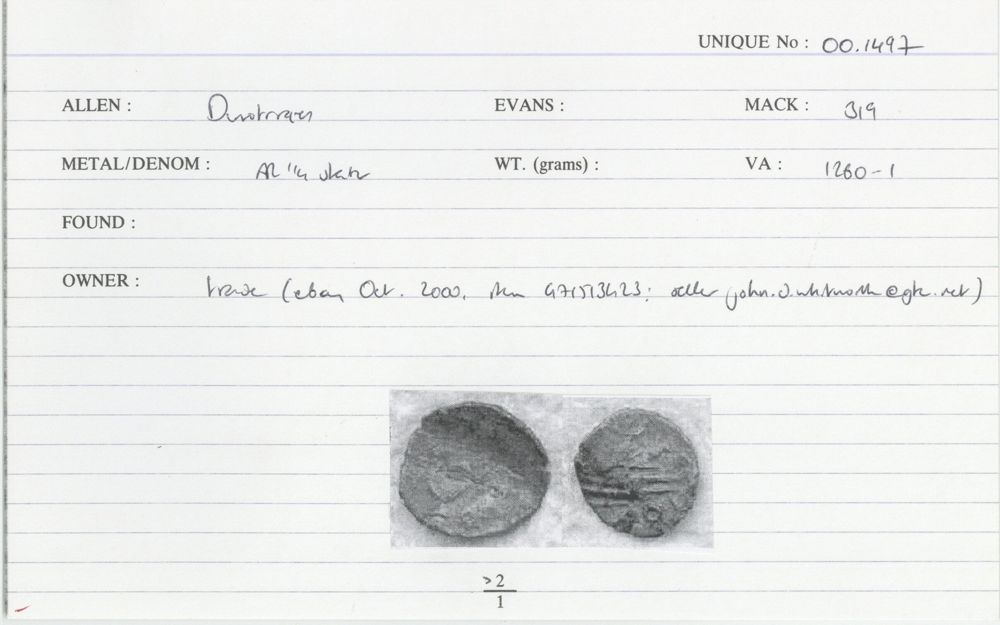 UNIQUE No : 00.1497
ALLEN : Durotriges EVANS : MACK : 319
METAL/DENOM : AR 1/4 stater WT. (grams) : VA : 1260-1
FOUND :
OWNER : trade (ebay Oct. 2000, item 471513423; seller @gte.net)
>2
1